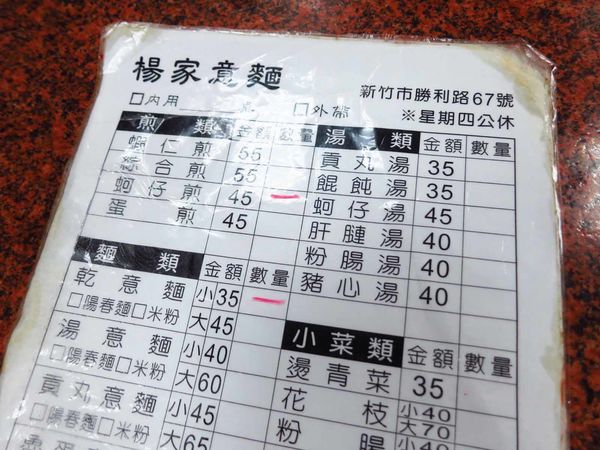 楊家意麵
新竹市勝利路67號
□內用 桌 □外帶 ※星期四公休
煎類 金額 數量
蝦仁煎 55
綜合煎 55
蚵仔煎 45 一
蛋煎 45
湯類 金額 數量
貢丸湯 35
餛飩湯 35
蚵仔湯 45
肝腱湯 40
粉腸湯 40
豬心湯 40
麵類 金額 數量
乾意麵 小35 一
□陽春麵□米粉 大45
湯意麵 小40
□陽春麵□米粉 大60
貢丸意麵 小45
□陽春麵□米粉 大65
小菜類 金額 數量
燙青菜 35
花枝 小40
大70
粉腸 小40